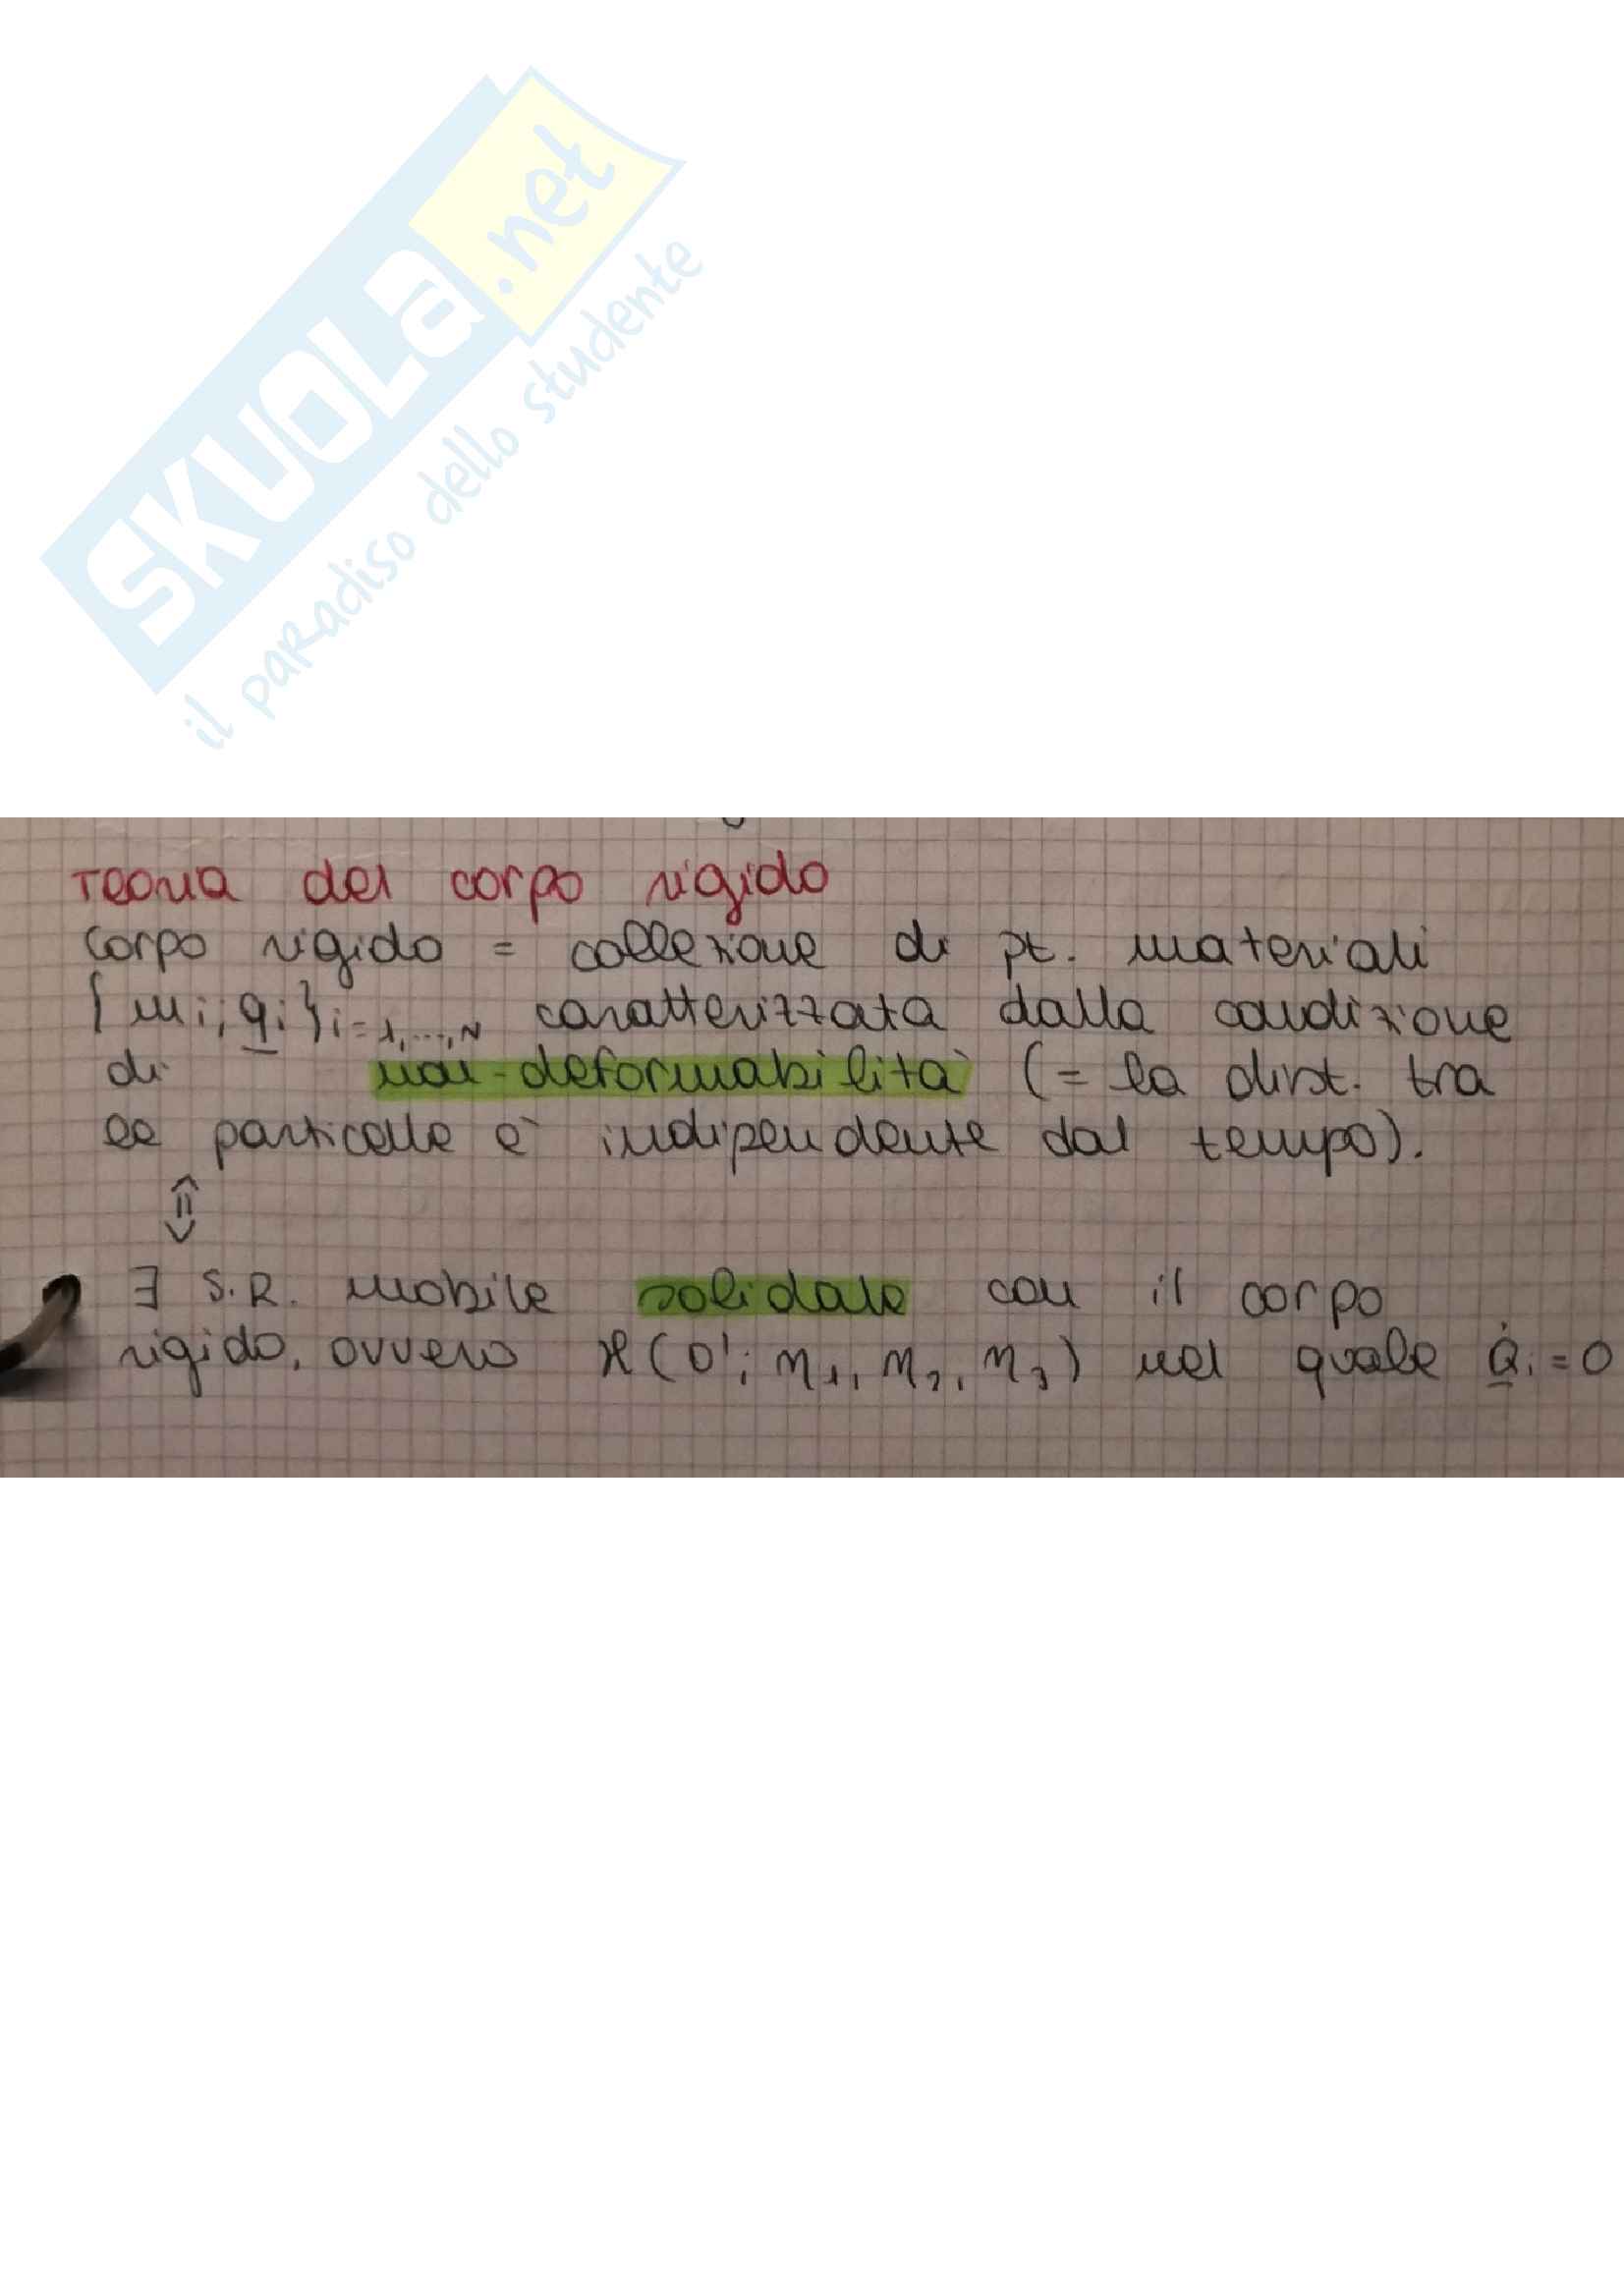 SKUOLA.net
il paradiso dello studente
Teoria del corpo rigido
Corpo rigido = collezione di pt. materiali
{mi; qi}i=1,...,N caratterizzata dalla condizione
di non-deformabilità (= la dist. tra
le particelle è indipendente dal tempo).
⇕
∃ S.R. mobile solidale con il corpo
rigido, ovvero ℋ(O'; η1, η2, η3) nel quale Q̇i = 0